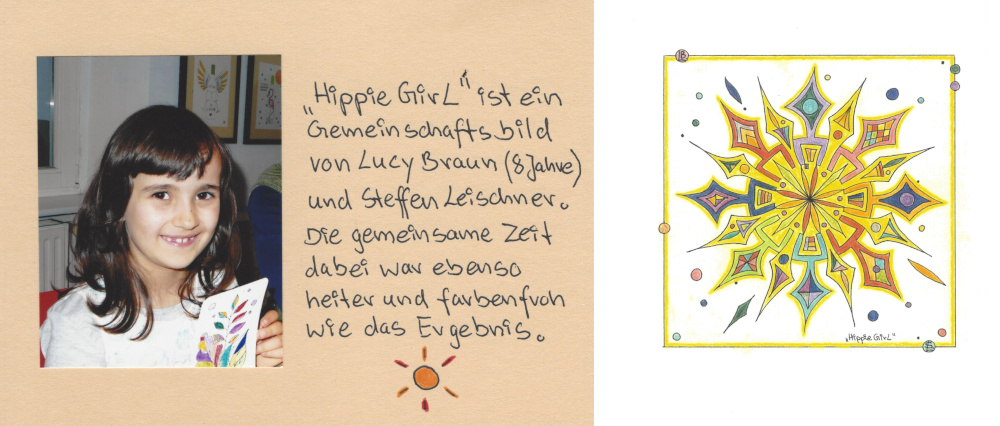 „Hippie GirL" ist ein
Gemeinschaftsbild
von Lucy Braun (8 Jahre)
und Steffen Leischner.
Die gemeinsame Zeit
dabei war ebenso
heiter und farbenfroh
wie das Ergebnis.
„Hippie GirL"